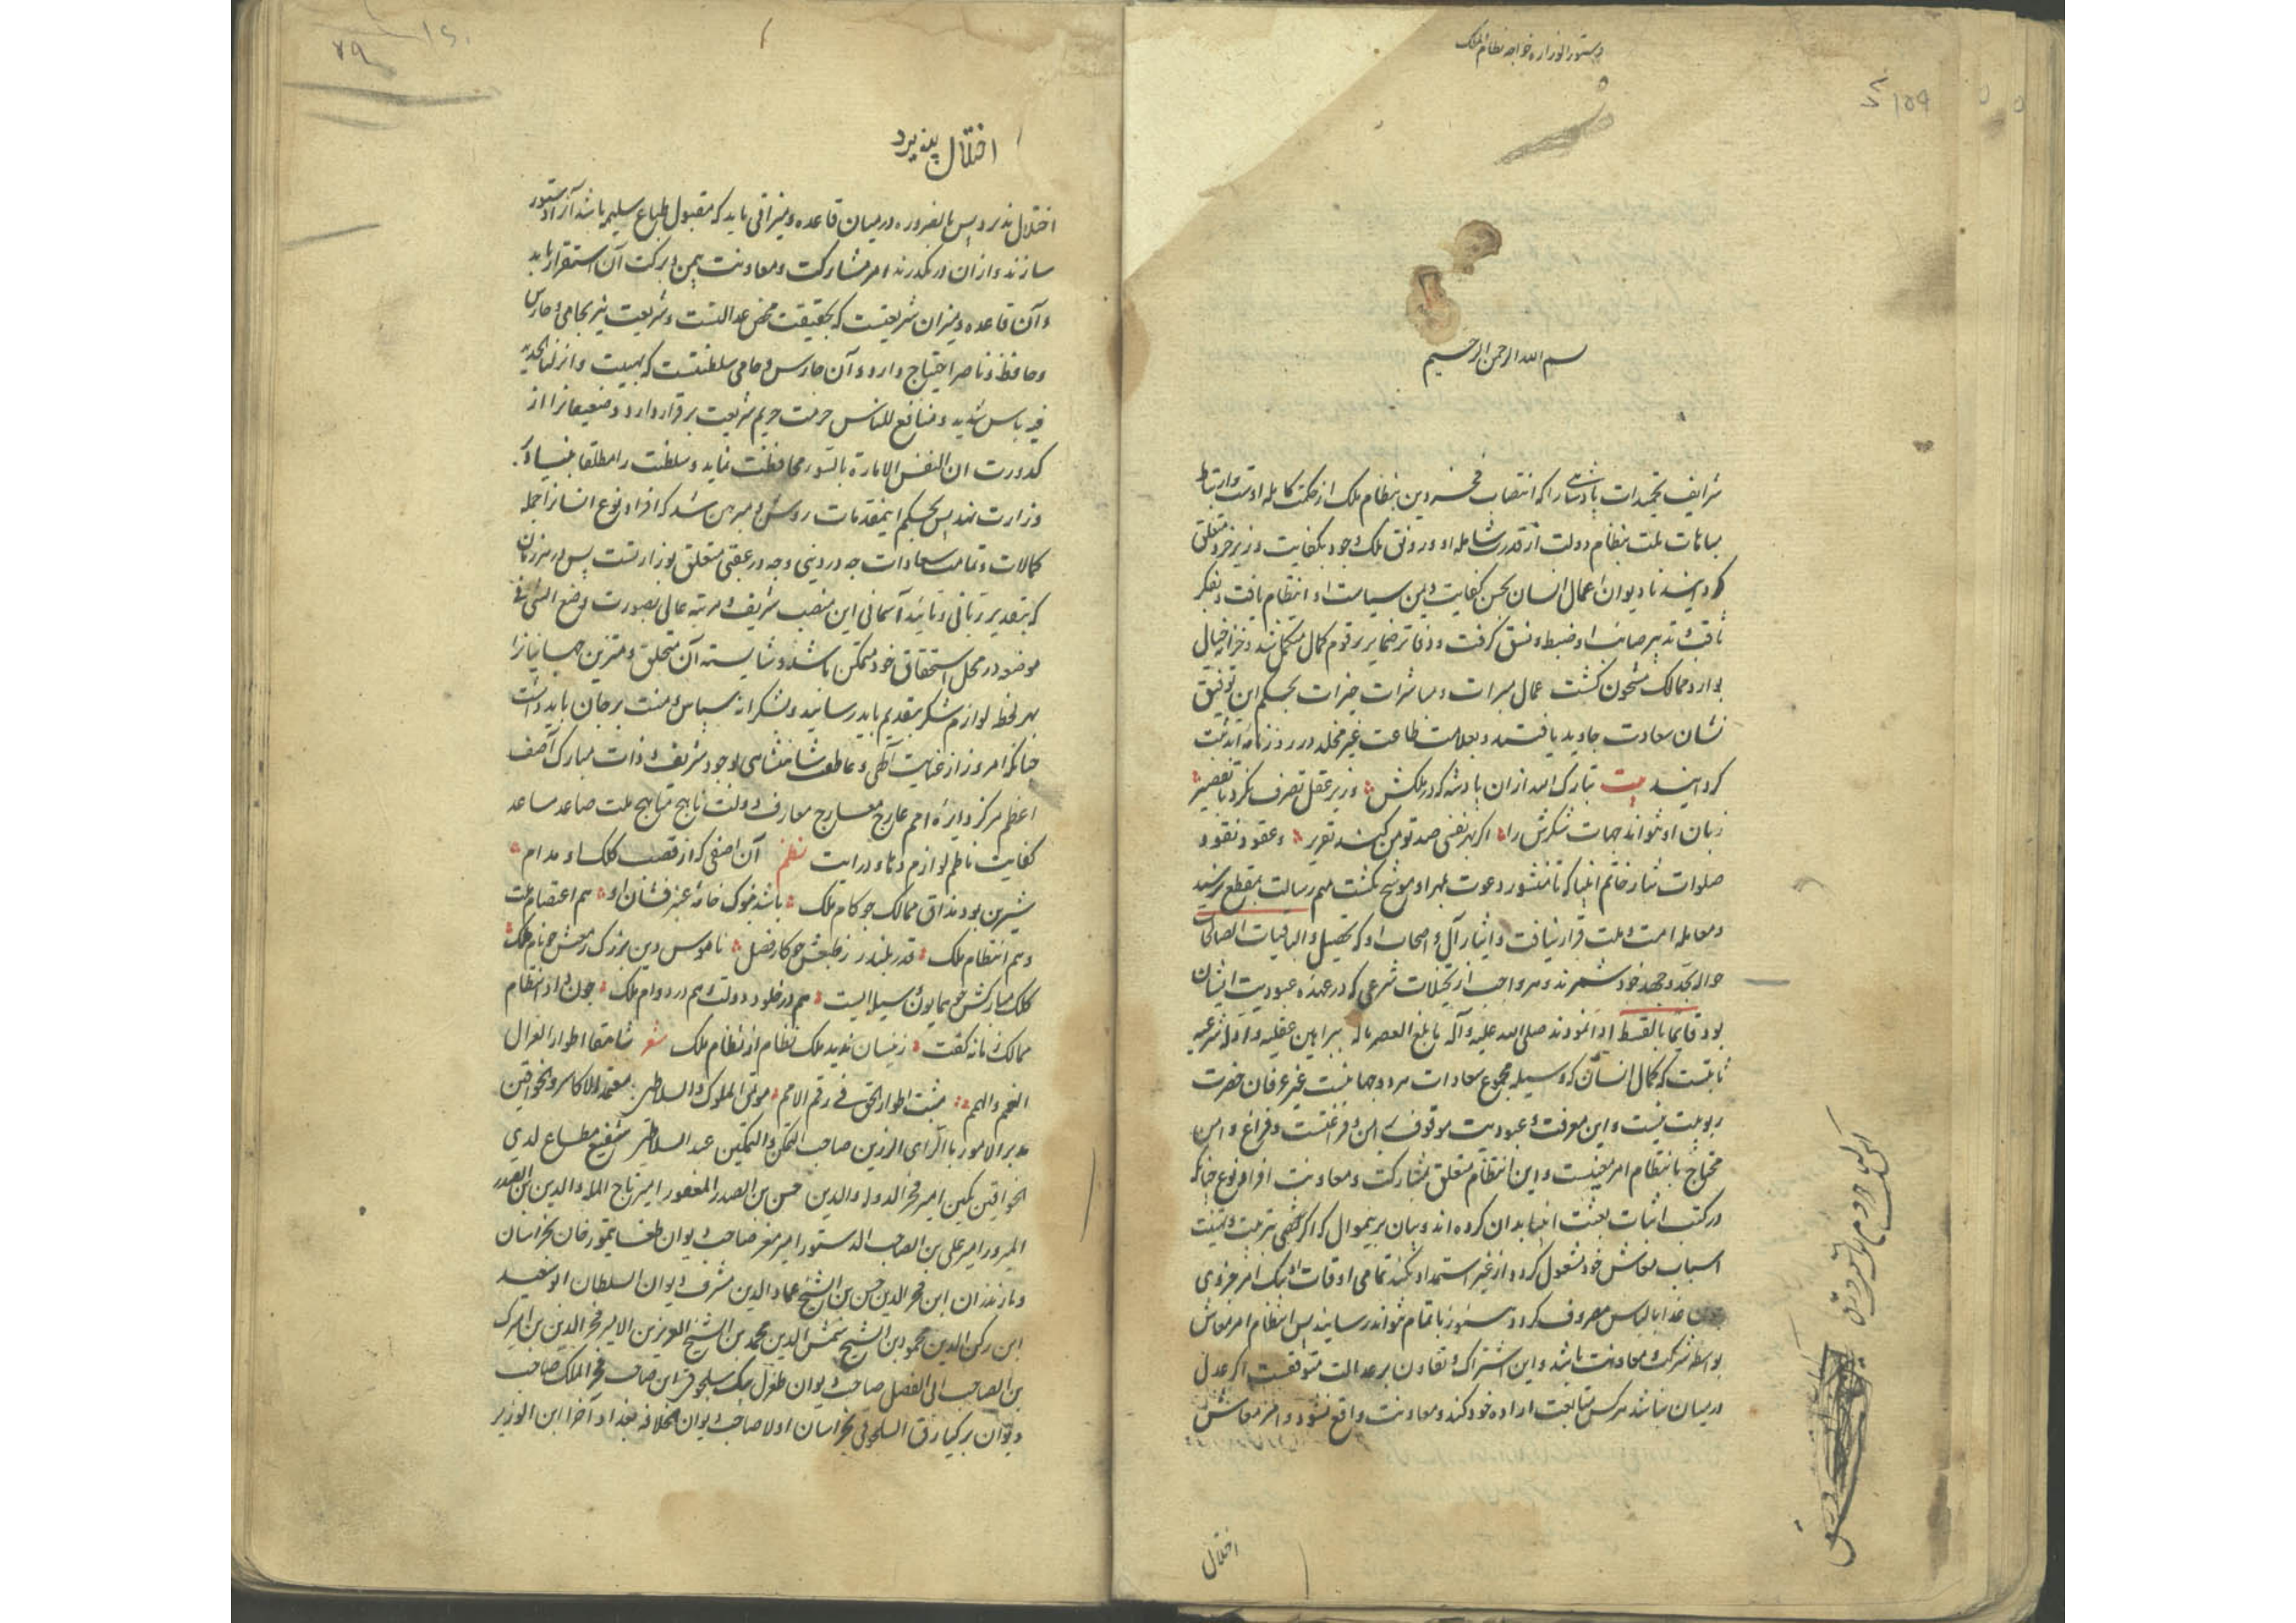 دستور الوزاره خواجه نظام الملک
۷۸ ۱۵۹
بسم الله الرحمن الرحیم
شرایف تحمیدات پادشاهی را که انتصاب دین بنظام ملک از حکمت کامله اوست و ارتباط
مباهات ملت بنظام دولت از قدرت شامله او و رونق ملک وجود بکفایت وزیر خرد متعلق
کردانید تا دیوان اعمال انسان بحسن کفایت و یمن سیاست او انتظام یافت و بفکر
ثاقب و تدبیر صائب او ضبط و نسق کرفت و دفاتر ضمایر برقوم کمال مکمل شد و خزاین خیال
ممالک مشحون کشت عمال مبرات و مباشرات خیرات بحکم این توفیق
نشان سعادت جاوید یافتند و بعلامت طاعت غیر مخلد در روزنامه ثبت
کردانیدند بیت تبارک الله ازان پادشه که در ملکش وزیر عقل تصرف نکرد بی تقصیر
زبان او نتواند جهات شکرش را اکر بهر نفسی صد تومن کند تقریر و عقود نقود
صلوات نثار خاتم انبیا که تا منشور دعوت بمهر او موشح نکشت مهم رسالت بمقطع نرسید
و معامله امت و ملت قرار نیافت و ایثار آل و اصحاب او که والباقیات الصالحات
حواله بجد و جهد خود شمردند و هر واجب از شرعی که در عهده عبودیت ایشان
بود قائما بالقسط ادا نمودند صلی الله علیه و آله ما بلغ العصر ماله ببراهین عقلیه و ادله شرعیه
ثابتست که کمال انسان که وسیله مجموع سعادات هر دو جهانیست غیر عرفان حضرت
ربوبیت نیست و این معرفت و عبودیت موقوف بر امن و فراغتست و فراغ و امن
محتاج بانتظام امر معیشت و این انتظام متعلق بمشارکت و معاونت افراد نوع چنانکه
در کتب اثبات بعثت انبیا بدان کرده اند و بیان برینموال که اکر شخصی بترتیب و تهیئت
اسباب معاش خود مشغول کردد و از غیر استمداد نکند تمامی اوقات او بیک امر جزوی
چون غذا یا لباس مصروف کردد و هنوز باتمام نتواند رسانید پس انتظام امر معاش
بواسطه شرکت و معاونت باشد و این اشتراک و تعاون بر عدالت متوقفست اکر عدلی
در میان نباشد هر کس متابعت اراده خود کند و معاونت واقع نشود و امر معاش
اختلال
۷۹ ۱۶۰
اختلال پذیرد
اختلال پذیرد پس بالضروره در میان قاعده و میزانی باید که مقبول طباع سلیمه باشد آنرا دستور
سازند و ازان در نکذرند امر مشارکت و معاونت بیمن و برکت آن استقرار یابد
و آن قاعده و میزان شریعتست که بحقیقت محض عدالتست و شریعت نیز بحامی و حارس
و حافظ و ناصر احتیاج دارد و آن حارس و حامی سلطنتست که بهیبت و انزلنا الحدید
فیه باس شدید و منافع للناس حرمت حریم شریعت برقرار دارد و ضعیفانرا از
کدورت ان النفس الامارة بالسوء محافظت نماید و سلطنت را مطلقا بنیاد بر
وزارت نهند پس بحکم اینمقدمات روشن و مبرهن شد که افراد نوع انسانرا جمله
کمالات و تمامت سعادات چه در دینی و چه در عقبی متعلق بوزارتست پس در هر زمان
که بتقدیر ربانی و تایید آسمانی این منصب شریف و مرتبه عالی بصورت وضع الشی فی
موضعه در محل استحقاق خود متمکن باشد و شایسته آن متحلق و متزین جهانیانرا
بهر لحظه لوازم شکر بتقدیم باید رسانید و بشکرانه سپاس و منت بر جان باید داشت
چنانکه امروز از عنایت الهی و عاطفت شاهنشاهی بوجود شریف و ذات مبارک آصف
اعظم مرکز دایره امم عارج معارج معارف دولت ناهج مناهج ملت صاعد ساعد
کفایت ناظم لوازم دهاء و درایت نظم آن آصفی که از قصب کلک او مدام
شیرین بود مذاق ممالک چو کام ملک باشد نوک خامه عنبر فشان او هم اعتصام ملت
و هم انتظام ملک قدر بلندر ز طبعش چو کار فضل ناموس دین بزرک ز سعیش چو نام ملک
کلک مبارکش چو همایون وسیله ایست هم در خلود دولت و هم در دوام ملک چون داد انتظام
ممالک زمانه کفت زینسان ندید ملک نظام از نظام ملک شعر شامقا اطوار
العجم والهمم مثبت اطوار الحق فی رقم الامم موتمن الملوک والسلاطین معتمد الاکاسر والخواقین
مدبر الامور بالرای الرزین صاحب التمکن والتمکین عند السلاطین شفیع مطاع لدی
الخواقین مکین امیر فخر الدوله والدین حسن بن الصدر المغفور امیر تاج المله والدین بن الصدر
المبرور امیر علی بن الصاحب الدستور امیر صاحب دیوان طغا یتمور خان بخراسان
و مازندران ابن فخر الدین حسن بن الشیخ عماد الدین مشرف دیوان السلطان ابو سعید
ابن رکن الدین محمود بن الشیخ شمس الدین محمد بن الشیخ العزیز بن الامیر فخر الدین بن امیرک
بن الصاحب ابی الفضل صاحب دیوان طغرل بیک سلجوقی ابن صاحب فخر الملک صاحب
دیوان برکیارق السلجوقی بخراسان اولا صاحب دیوان بخلافه بغداد آخرا ابن الوزیر